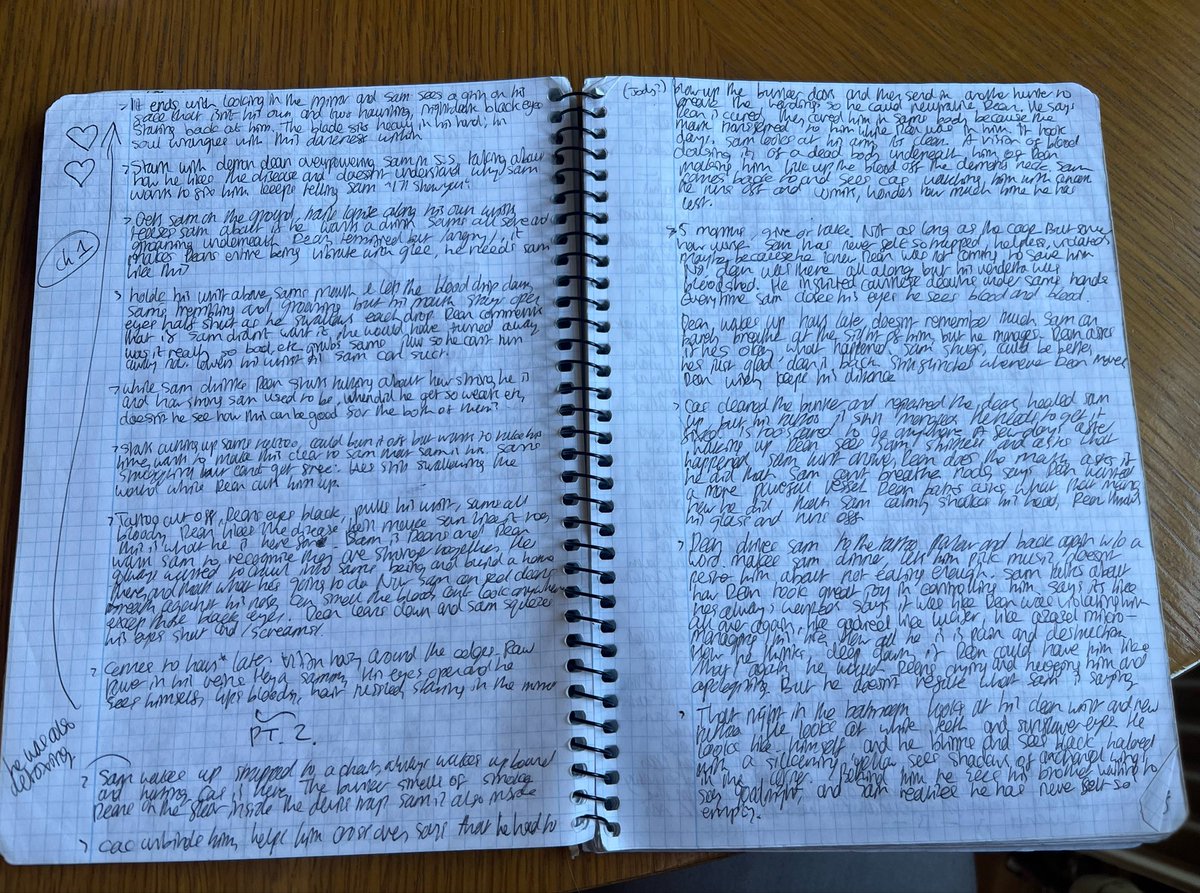 > It ends with looking in the mirror and Sam sees a grin on his
face that isn't his own, and two haunting, nightdark black eyes
staring back at him. The blade sits heavy in his hand; his
soul wrangled with this darkness within
> Starts with demon dean overpowering Sam in s.s, talking about
how he likes the disease and doesn't understand why Sam
wants to fix him. keeps telling Sam "I'll show you".
> Gets Sam on the ground, knife along his own wrist,
teases Sam about is he want a drink. Sam's all sore and
groaning underneath Dean, terrified but angry, it
makes Dean's entire being vibrate with glee, he needs Sam
like this
> holds his wrist above Sam's mouth & lets the blood drip down
Sam's trembling and groaning but his mouth stays open
eyes half shut as he swallows each drop. Dean comments
that if Sam didn't want it, he would have turned away
was it really so bad, etc. grabs Sam's jaw so he can't turn
away. lowers his wrist till Sam can suck.
> While Sam drinks Dean starts talking about how strong he is
and how strong Sam used to be, when did he get so weak etc,
doesn't he see how this can be good for the both of them?
> Starts cutting up Sam's tattoo, could burn it off but wants to take his
time, wants to make this clear to Sam that Sam is his. Sam's
struggling but can't get free. He's still swallowing the
blood while Dean cuts him up.
> Tattoo cut off, Dean's eyes black, pulls his wrist, Sam's all
bloody. Dean likes the disease, he'll make Sam like it too,
this is what he is here for. Sam is Dean's and Dean
wants Sam to recognise they are stronger together. He
always wanted to crawl into Sam's being and build a home
there, and that's what he's going to do. Now Sam can feel Dean's
breath against his nose, can smell the blood, can't look anywhere
except those black eyes. Dean leans down and Sam squeezes
his eyes shut and screams.
> Comes to hours later. Vision hazy around the edges. Raw
power in his veins. Heya Sammy. His eyes open and he
sees himself, lips bloody, hair ruffled, staring in the mirror
PT. 2.
> Sam wakes up strapped to a chair, always wakes up bound
and hurting. Cas is here. The bunker smells of smoke,
Dean's on the floor inside the devil's trap. Sam is also inside
> Cas unbinds him, helps him cross over, says that he had to
Ch 1
he was also
detoxing
(Jody?) blow up the bunker doors and then send in another hunter to
break the wardings so he could neutralise Dean. He says
Dean is cured, they cured him in Sam's body because the
mark transferred to him while Dean was in him. It took
days. Sam looks at his arm, it's clean. A vision of blood
of a dead body underneath him of Dean
making him lick up the blood off the demon's neck. Sam
comes back to and sees Cas watching him with concern
he runs off and vomits, wonders how much time he has
lost.
> 5 months, give or take. Not as long as the cage. But some
how worse. Sam has never felt so trapped, helpless, violated
maybe because he knew Dean was not coming to save him
No, Dean was there all along but his vendetta was
bloodshed. He inflicted countless deaths under Sam's hands
Everytime Sam closes his eyes he sees blood and blood.
Dean wakes up half late doesn't remember much. Sam can
barely breathe at the sight of him, but he manages. Dean asks
if he's okay, what happened, Sam shrugs, could be better,
he's just glad Dean is back. Still flinches whenever Dean moves
Dean wisely keeps his distance
> Cas cleaned the bunker and repaired the doors, healed Sam
up, but his tattoo is still mangled. He needs to get it
fixed, is too scared to go anywhere. A few days after
waking up Dean sees Sam shirtless and asks what
happened. Sam won't answer. Dean does the math, asks if
he did that. Sam can't breathe, nods, says Dean wanted
a more powerful vessel. Dean asks what that means
how he did that. Sam calmly shakes his head, Dean
his glass and runs off
> Dean drives Sam to the tattoo parlour and back again w/o a
word. makes Sam dinner, lets him pick music, doesn't
pester him about not eating enough. Sam talks about
how Dean took great joy in controlling him, says it's like
he's always wanted, says it was like Dean was violating him
all over again, like gadreel like lucifer, like azazel micro-
managing his life, now all he is is pain and destruction
how he thinks, deep down, if Dean could have him like
that again, he would. Dean's crying and hugging him and
apologising. But he doesn't refute what Sam is saying
> That night in the bathroom looks at his clean wrist and new
tattoo. He looks at white teeth and sunflower eyes. He
looks like himself, and he blinks and sees black haloed
with a sickening yellow, sees shadows of archangel wings
in the corner. Behind him he sees his brother waiting to
say goodnight, and Sam realizes he has never felt so
empty.